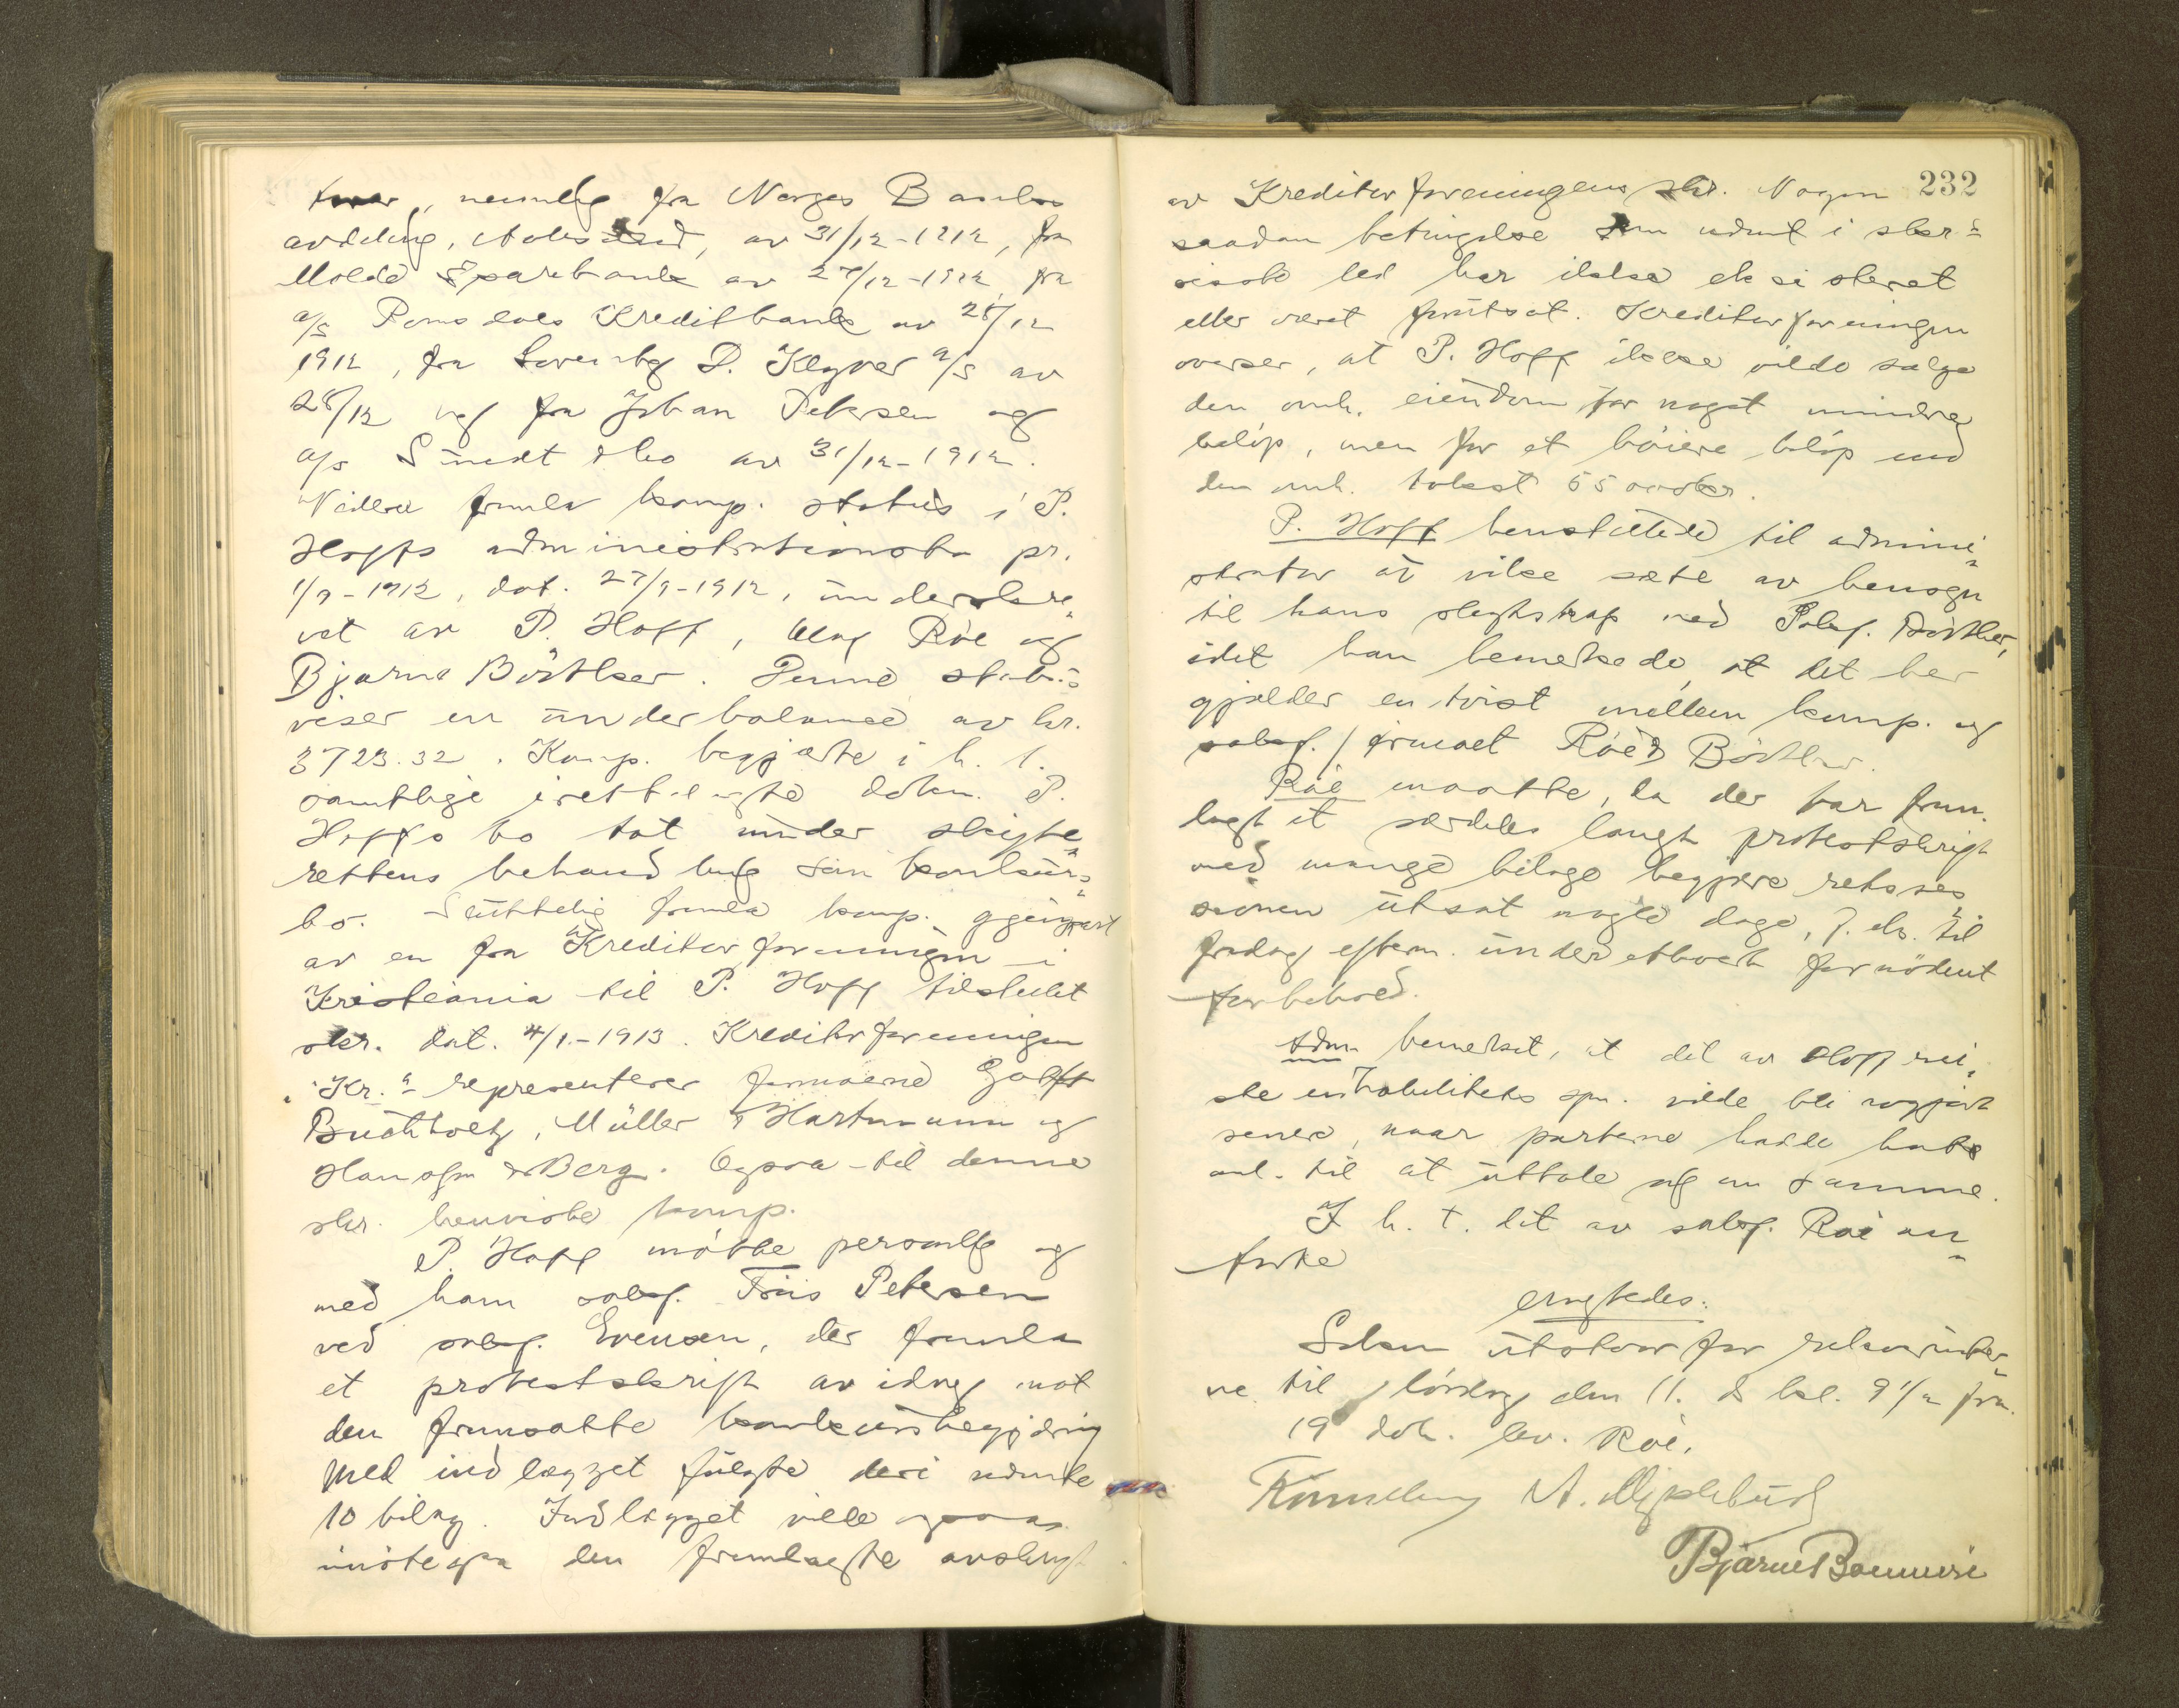 nemlig fra Norges Banks
avdeling, Aalesund, av 31/12-1912, fra
Molde Sparebank av 27/12-1912, fra
a/s Romsdals Kreditbank av 28/12
1912, fra D. Klyver a/s av
28/12 og fra Johan Petersen og
a/s Sundt & Co av 31/12-1912.
Videre fremla komp. status i P.
Hoffs administrationsbo pr.
1/9-1912, dat. 27/9-1912, underskre-
vet av P. Hoff, Olaf Röe og
Bjarne Böstler. Denne status
viser en underbalance av kr.
3723.32. Komp. begjærte i h. t.
samtlige irettelagte dokm. P.
Hoffs bo tat under skifte-
rettens behandling som konkurs-
bo. Sluttelig fremla komp. gjenpart
av en fra Kreditorforeningen i
Kristiania til P. Hoff tilstillet
skr. dat. 4/1-1913. Kreditorforeningen
i Kr.a representerer firmaerne
Buchholtz, Müller & Hartmann og
Hansen & Berg. Ogsaa til denne
skr. henviste komp.
P. Hoff mötte personlig og
med ham sakf. Friis Petersen
ved sakf. Evensen, der fremla
et protestskrift av idag mot
den fremsatte konkursbegjæring
Med indlægget fulgte deri nævnte
10 bilag. Indlægget vilde ogsaa
imötegaa den fremlagte avskrift
232
av Kreditorforeningens skr. Nogen
saadan betingelse som nævnt i skr.s
siste led har ikke eksisteret
eller været forutsat. Kreditorforeningen
overser, at P. Hoff ikke vilde sælge
den omh. eiendom for noget mindre
belöp, men for et höiere belöp end
den omh. takst 55000 kr.
P. Hoff henstillede til admini-
strator at vike sæte av hensyn
til hans slegtskap med Sakf. Böstler,
idet han bemerkede, at det her
gjælder en tvist mellem komp. og
sakf. firmaet Röe & Böstler.
Röe maatte, da der var frem-
lagt et særdeles langt protestskrift
med mange bilage begjære retsses-
sionen utsat nogle dage, f. eks. til
fredag efterm. under ethvert fornödent
forbehold.
Adm. bemerket, at det av Hoff rei-
ste inhabilitets spm. vilde bli avgjort
senere, naar parterne hadde havt
anl. til at uttale sig om samme.
I h. t. det av sakf. Röe an-
förte
eragtedes:
Saken utstaar for retsvidner-
ne til lördag den 11. ds kl. 9 1/2 fm.
19 dok. lev. Röe.
A. Mjelsbud
Bjarne